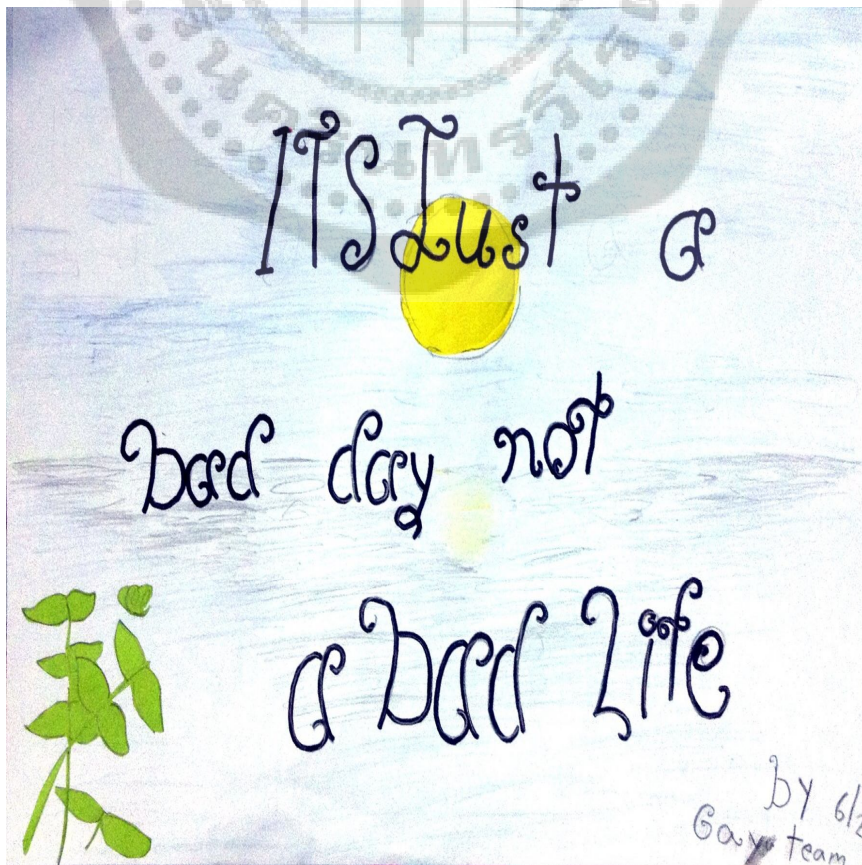 ITS Just a
bad day not
a bad Life
by 6/2
Gay team
นครินทรวิโร